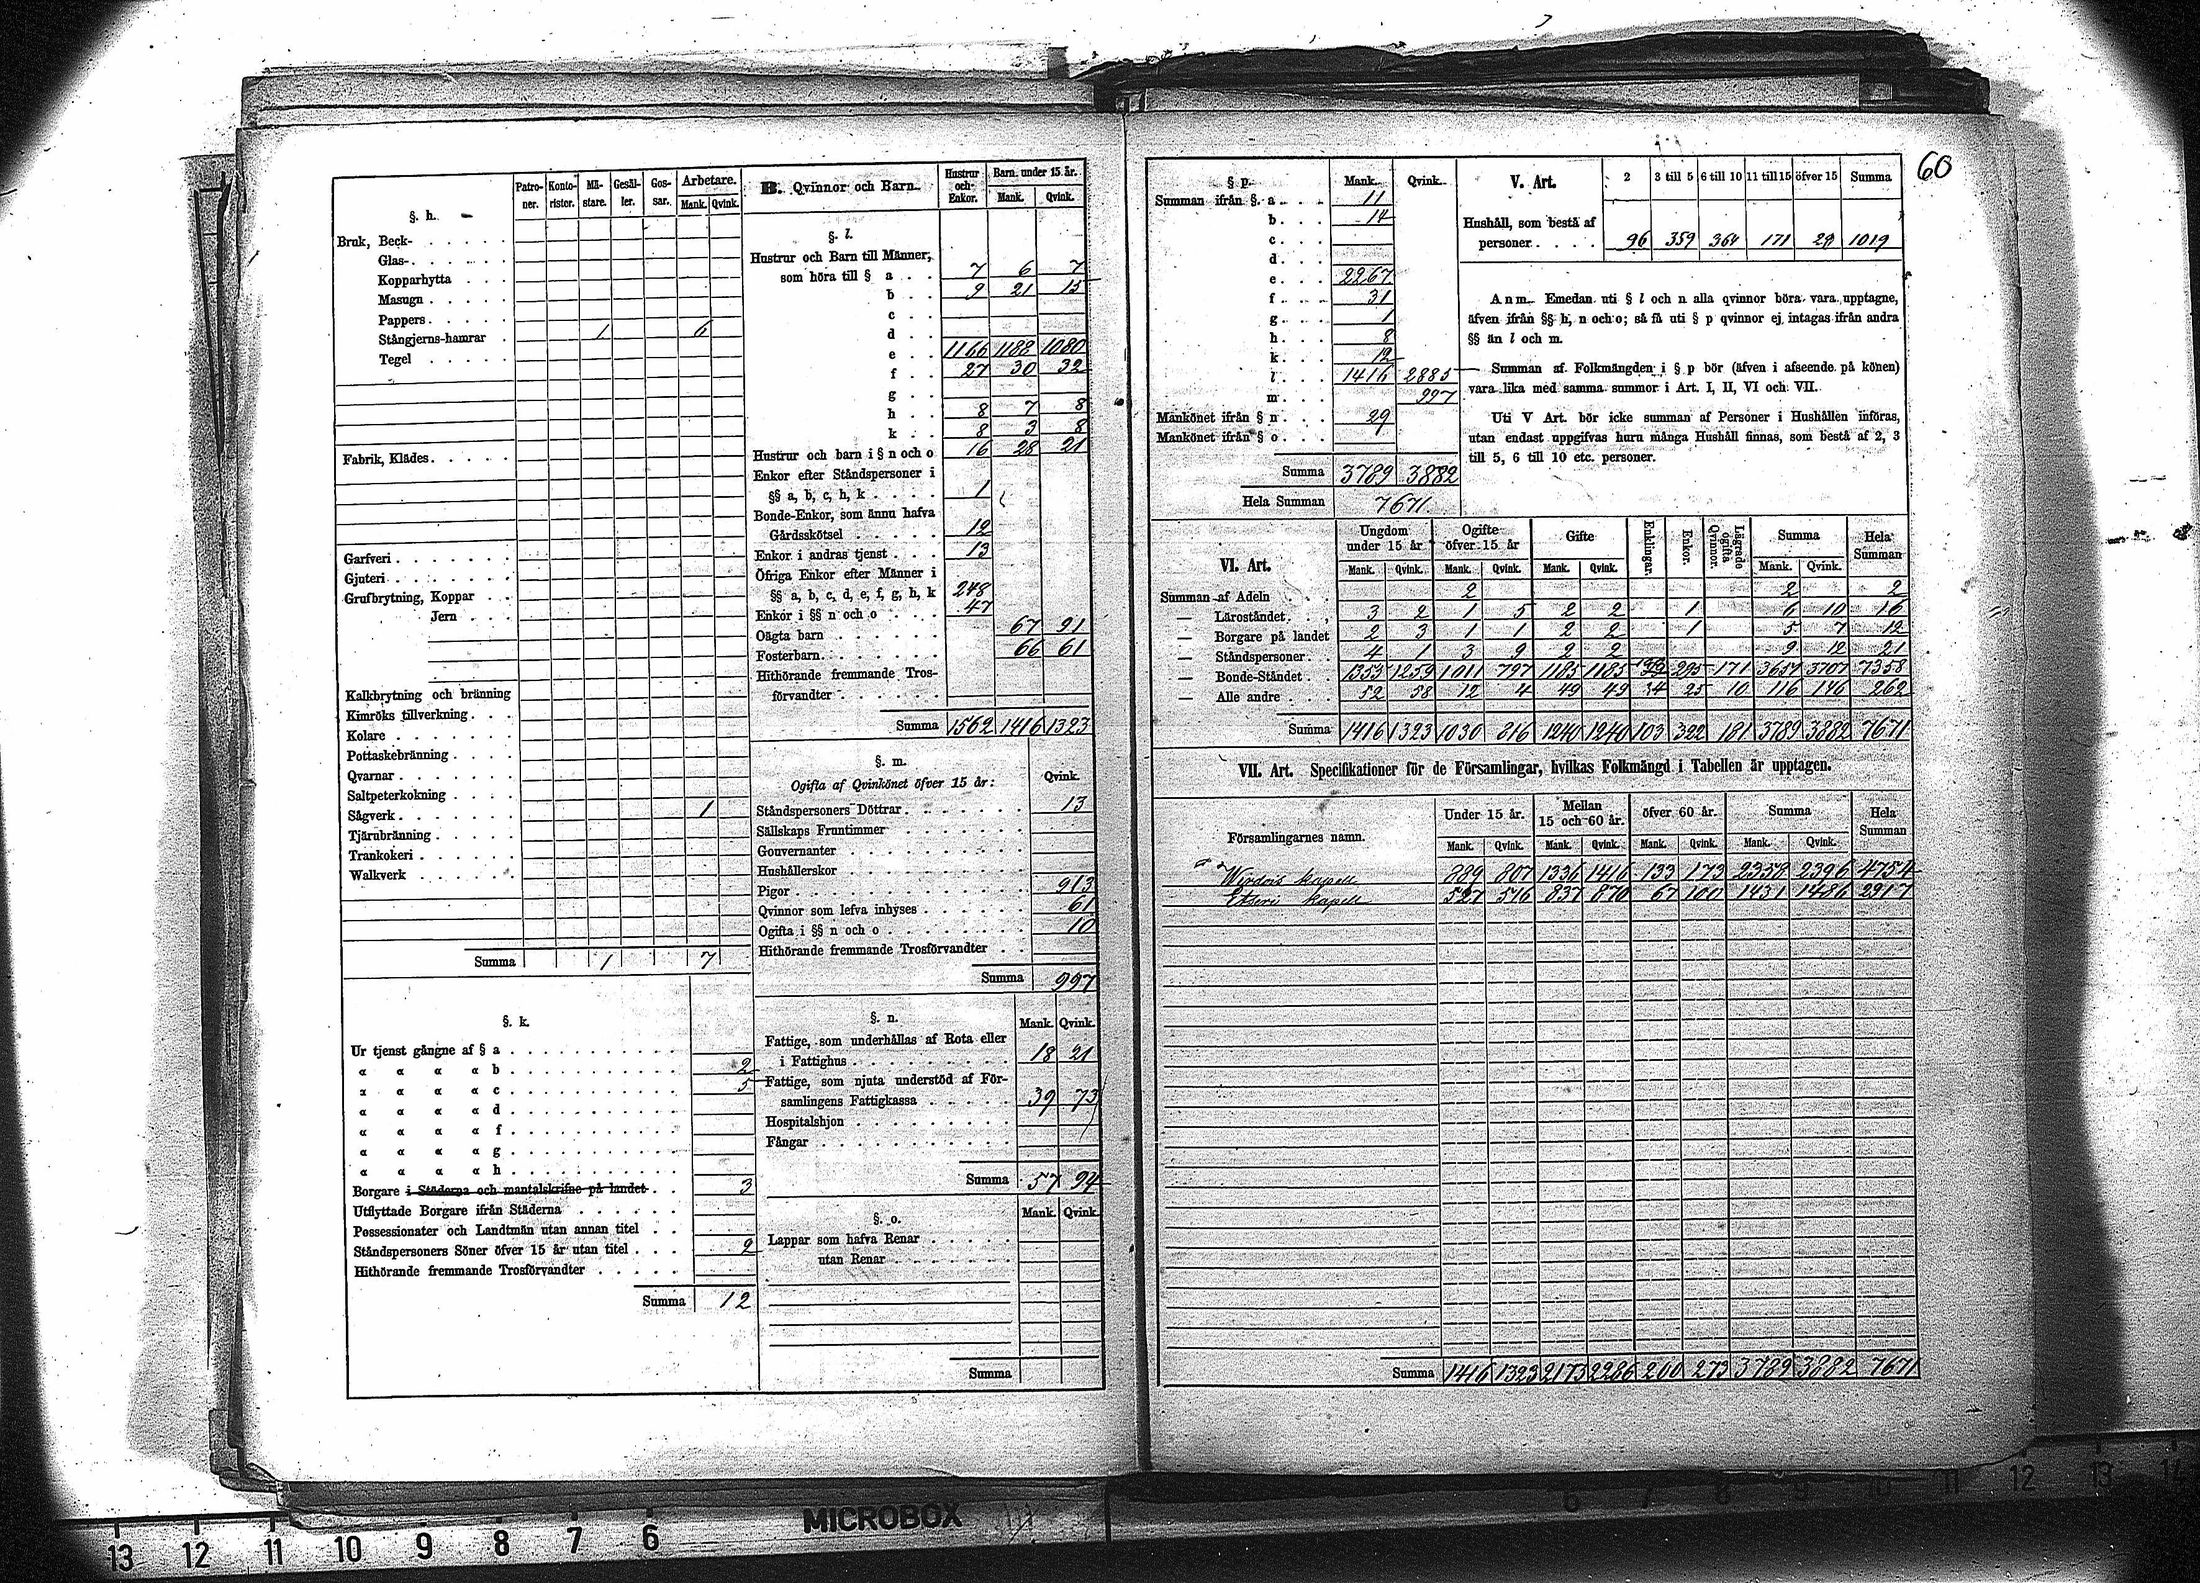 60
Patro-ner. Konto-rister. Mä-stare. Gesäl-ler. Gos-sar. Arbetare. Mank. Qvink.
§. h.
Bruk, Beck-
Glas-
Kopparhytta
Masugn
Pappers
Stångjerns-hamrar 1 6
Tegel
Fabrik, Klädes
Garfveri
Gjuteri
Grufbrytning, Koppar
Jern
Kalkbrytning och bränning
Kimröks tillverkning
Kolare
Pottaskebränning
Qvarnar
Saltpeterkokning
Sågverk 1
Tjärubränning
Trankokeri
Walkverk
Summa 1 7
§. k.
Ur tjenst gångne af § a
« « « « b 2
« « « « c 5
« « « « d
« « « « f
« « « « g
« « « « h
Borgare i Städerna och mantalskrifne på landet 3
Utflyttade Borgare ifrån Städerna
Possessionater och Landtmän utan annan titel
Ståndspersoners Söner öfver 15 år utan titel 2
Hithörande fremmande Trosförvandter
Summa 12
B. Qvinnor och Barn. Hustrur och Enkor. Barn under 15 år. Mank. Qvink.
§. l.
Hustrur och Barn till Männer,
som höra till § a 7 6 7
b 9 21 15
c
d
e 1166 1188 1080
f 27 30 32
g
h 8 7 8
k 8 3 8
Hustrur och barn i § n och o 16 28 21
Enkor efter Ståndspersoner i
§§ a, b, c, h, k 1
Bonde-Enkor, som ännu hafva
Gårdsskötsel 12
Enkor i andras tjenst 13
Öfriga Enkor efter Männer i
§§ a, b, c, d, e, f, g, h, k 248
Enkor i §§ n och o 47
Oägta barn 67 91
Fosterbarn 66 61
Hithörande fremmande Tros-
förvandter
Summa 1562 1416 1323
§. m.
Ogifta af Qvinkönet öfver 15 år: Qvink.
Ståndspersoners Döttrar 13
Sällskaps Fruntimmer
Gouvernanter
Hushållerskor
Pigor 913
Qvinnor som lefva inhyses 61
Ogifta i §§ n och o 10
Hithörande fremmande Trosförvandter
Summa 997
§. n. Mank. Qvink.
Fattige, som underhållas af Rota eller
i Fattighus 18 21
Fattige, som njuta understöd af För-
samlingens Fattigkassa 39 73
Hospitalshjon
Fångar
Summa 57 94
§. o. Mank. Qvink.
Lappar som hafva Renar
utan Renar
Summa
§ p. Mank. Qvink.
Summan ifrån §. a 11
b 14
c
d
e 2267
f 31
g 1
h 8
k 12
l 1416 2885
m 997
Mankönet ifrån § n 29
Mankönet ifrån § o
Summa 3789 3882
Hela Summan 7671
V. Art. 2 3 till 5 6 till 10 11 till 15 öfver 15 Summa
Hushåll, som bestå af
personer 96 359 364 171 29 1019
Anm. Emedan uti § l och n alla qvinnor böra vara upptagne,
äfven ifrån §§ h, n och o; så få uti § p qvinnor ej intagas ifrån andra
§§ än l och m.
Summan af Folkmängden i § p bör (äfven i afseende på könen)
vara lika med samma summor i Art. I, II, VI och VII.
Uti V Art. bör icke summan af Personer i Hushållen införas,
utan endast uppgifvas huru många Hushåll finnas, som bestå af 2, 3
till 5, 6 till 10 etc. personer.
VI. Art. Ungdom under 15 år Ogifte öfver 15 år Gifte Enklingar. Enkor. Lägrade ogifta Qvinnor. Summa Hela Summan
Mank. Qvink. Mank. Qvink. Mank. Qvink. Mank. Qvink.
Summan af Adeln 2 2 2
— Läroståndet 3 2 1 5 2 2 1 6 10 16
— Borgare på landet 2 3 1 1 2 2 1 5 7 12
— Ståndspersoner 4 1 3 9 2 2 9 12 21
— Bonde-Ståndet 1355 1259 1011 797 1185 1185 295 171 3651 3707 7358
— Alle andre 52 58 12 4 49 49 25 10 116 146 262
Summa 1416 1323 1030 816 1240 1240 103 322 181 3789 3882 7671
VII. Art. Specifikationer för de Församlingar, hvilkas Folkmängd i Tabellen är upptagen.
Församlingarnes namn. Under 15 år. Mellan 15 och 60 år. öfver 60 år. Summa Hela Summan
Mank. Qvink. Mank. Qvink. Mank. Qvink. Mank. Qvink.
Wirdois kapell 889 807 1336 1416 133 173 2358 2396 4754
Etseri kapell 527 516 837 870 67 100 1431 1486 2917
Summa 1416 1323 2173 2286 200 273 3789 3882 7671
MICROBOX
13 12 11 10 9 8 7 6
6 7 8 9 10 11 12 13 14